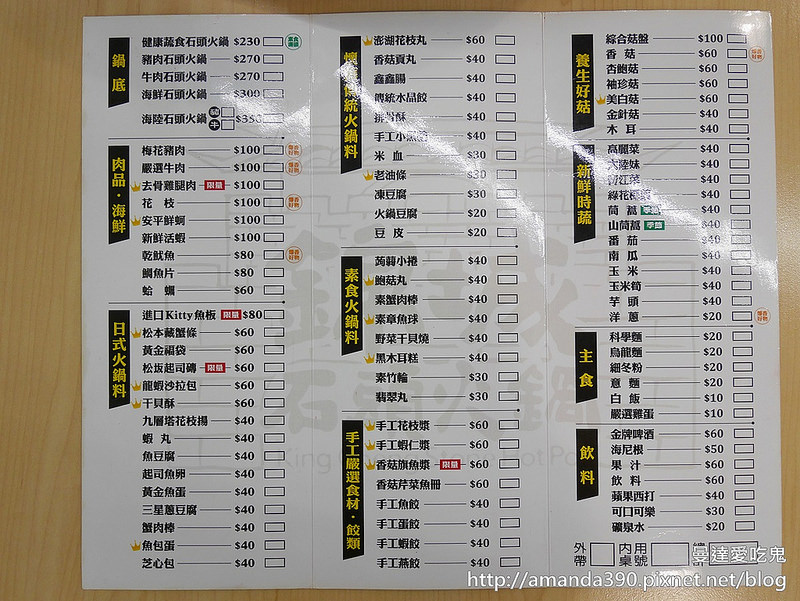 鍋底
健康蔬食石頭火鍋 $230
豬肉石頭火鍋 $270
牛肉石頭火鍋 $270
海鮮石頭火鍋 $300
海陸石頭火鍋 豬 牛
肉品・海鮮
梅花豬肉 $100
嚴選牛肉 $100
去骨雞腿肉 限量 $100
花枝 $100
安平鮮蚵 $100
新鮮活蝦 $100
乾魷魚 $80
鯛魚片 $80
蛤蠣 $60
日式火鍋料
進口Kitty魚板 限量 $80
松本藏蟹條 $60
黃金福袋 $60
松坂起司磚 限量 $60
龍蝦沙拉包 $60
干貝酥 $60
九層塔花枝揚 $40
蝦丸 $40
魚豆腐 $40
起司魚卵 $40
黃金魚蛋 $40
三星蔥豆腐 $40
蟹肉棒 $40
魚包蛋 $40
芝心包 $40
傳統火鍋料
澎湖花枝丸 $60
香菇貢丸 $40
鑫鑫腸 $40
傳統水晶餃 $40
排骨酥 $40
手工小黑輪 $40
米血 $30
老油條 $30
凍豆腐 $30
火鍋豆腐 $20
豆皮 $20
素食火鍋料
蒟蒻小捲 $40
鮑菇丸 $40
素蟹肉棒 $40
素章魚球 $40
野菜干貝燒 $40
黑木耳糕 $40
素竹輪 $30
翡翠丸 $30
手工嚴選食材・餃類
手工花枝漿 $60
手工蝦仁漿 $60
香菇旗魚漿 限量 $60
香菇芹菜魚冊 $60
手工魚餃 $40
手工蛋餃 $40
手工蝦餃 $40
手工燕餃 $40
養生好菇
綜合菇盤 $100
香菇 $60
杏鮑菇 $60
袖珍菇 $60
美白菇 $60
金針菇 $40
木耳 $40
新鮮時蔬
高麗菜 $40
大陸妹 $40
青江菜 $40
綠花椰菜 $40
茼蒿 季節 $40
山茼蒿 季節 $40
番茄 $40
南瓜 $40
玉米 $40
玉米筍 $40
芋頭 $40
洋蔥 $20
主食
科學麵 $20
烏龍麵 $20
細冬粉 $20
意麵 $20
白飯 $10
嚴選雞蛋 $10
飲料
金牌啤酒 $60
海尼根 $50
果汁 $60
飲料 $60
蘋果西打 $40
可口可樂 $30
礦泉水 $20
外帶
內用桌號
石頭火鍋
曼達愛吃鬼
http://amanda390.pixnet.net/blog